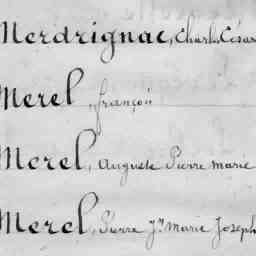 Merdrignac, Charles César
Merel, françois
Merel, Auguste Pierre Marie
Merel, Pierre Jn Marie Joseph